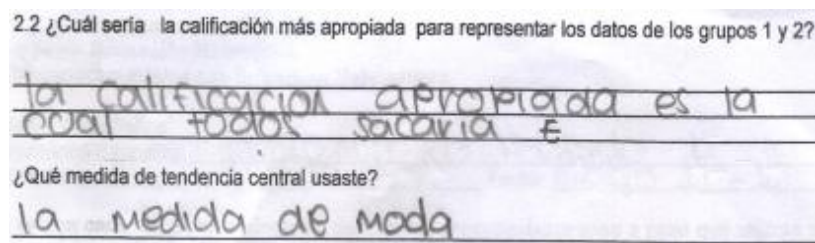 2.2 ¿Cuál sería la calificación más apropiada para representar los datos de los grupos 1 y 2?
la calificación apropiada es la
cual todos sacaria E
¿Qué medida de tendencia central usaste?
la medida de moda